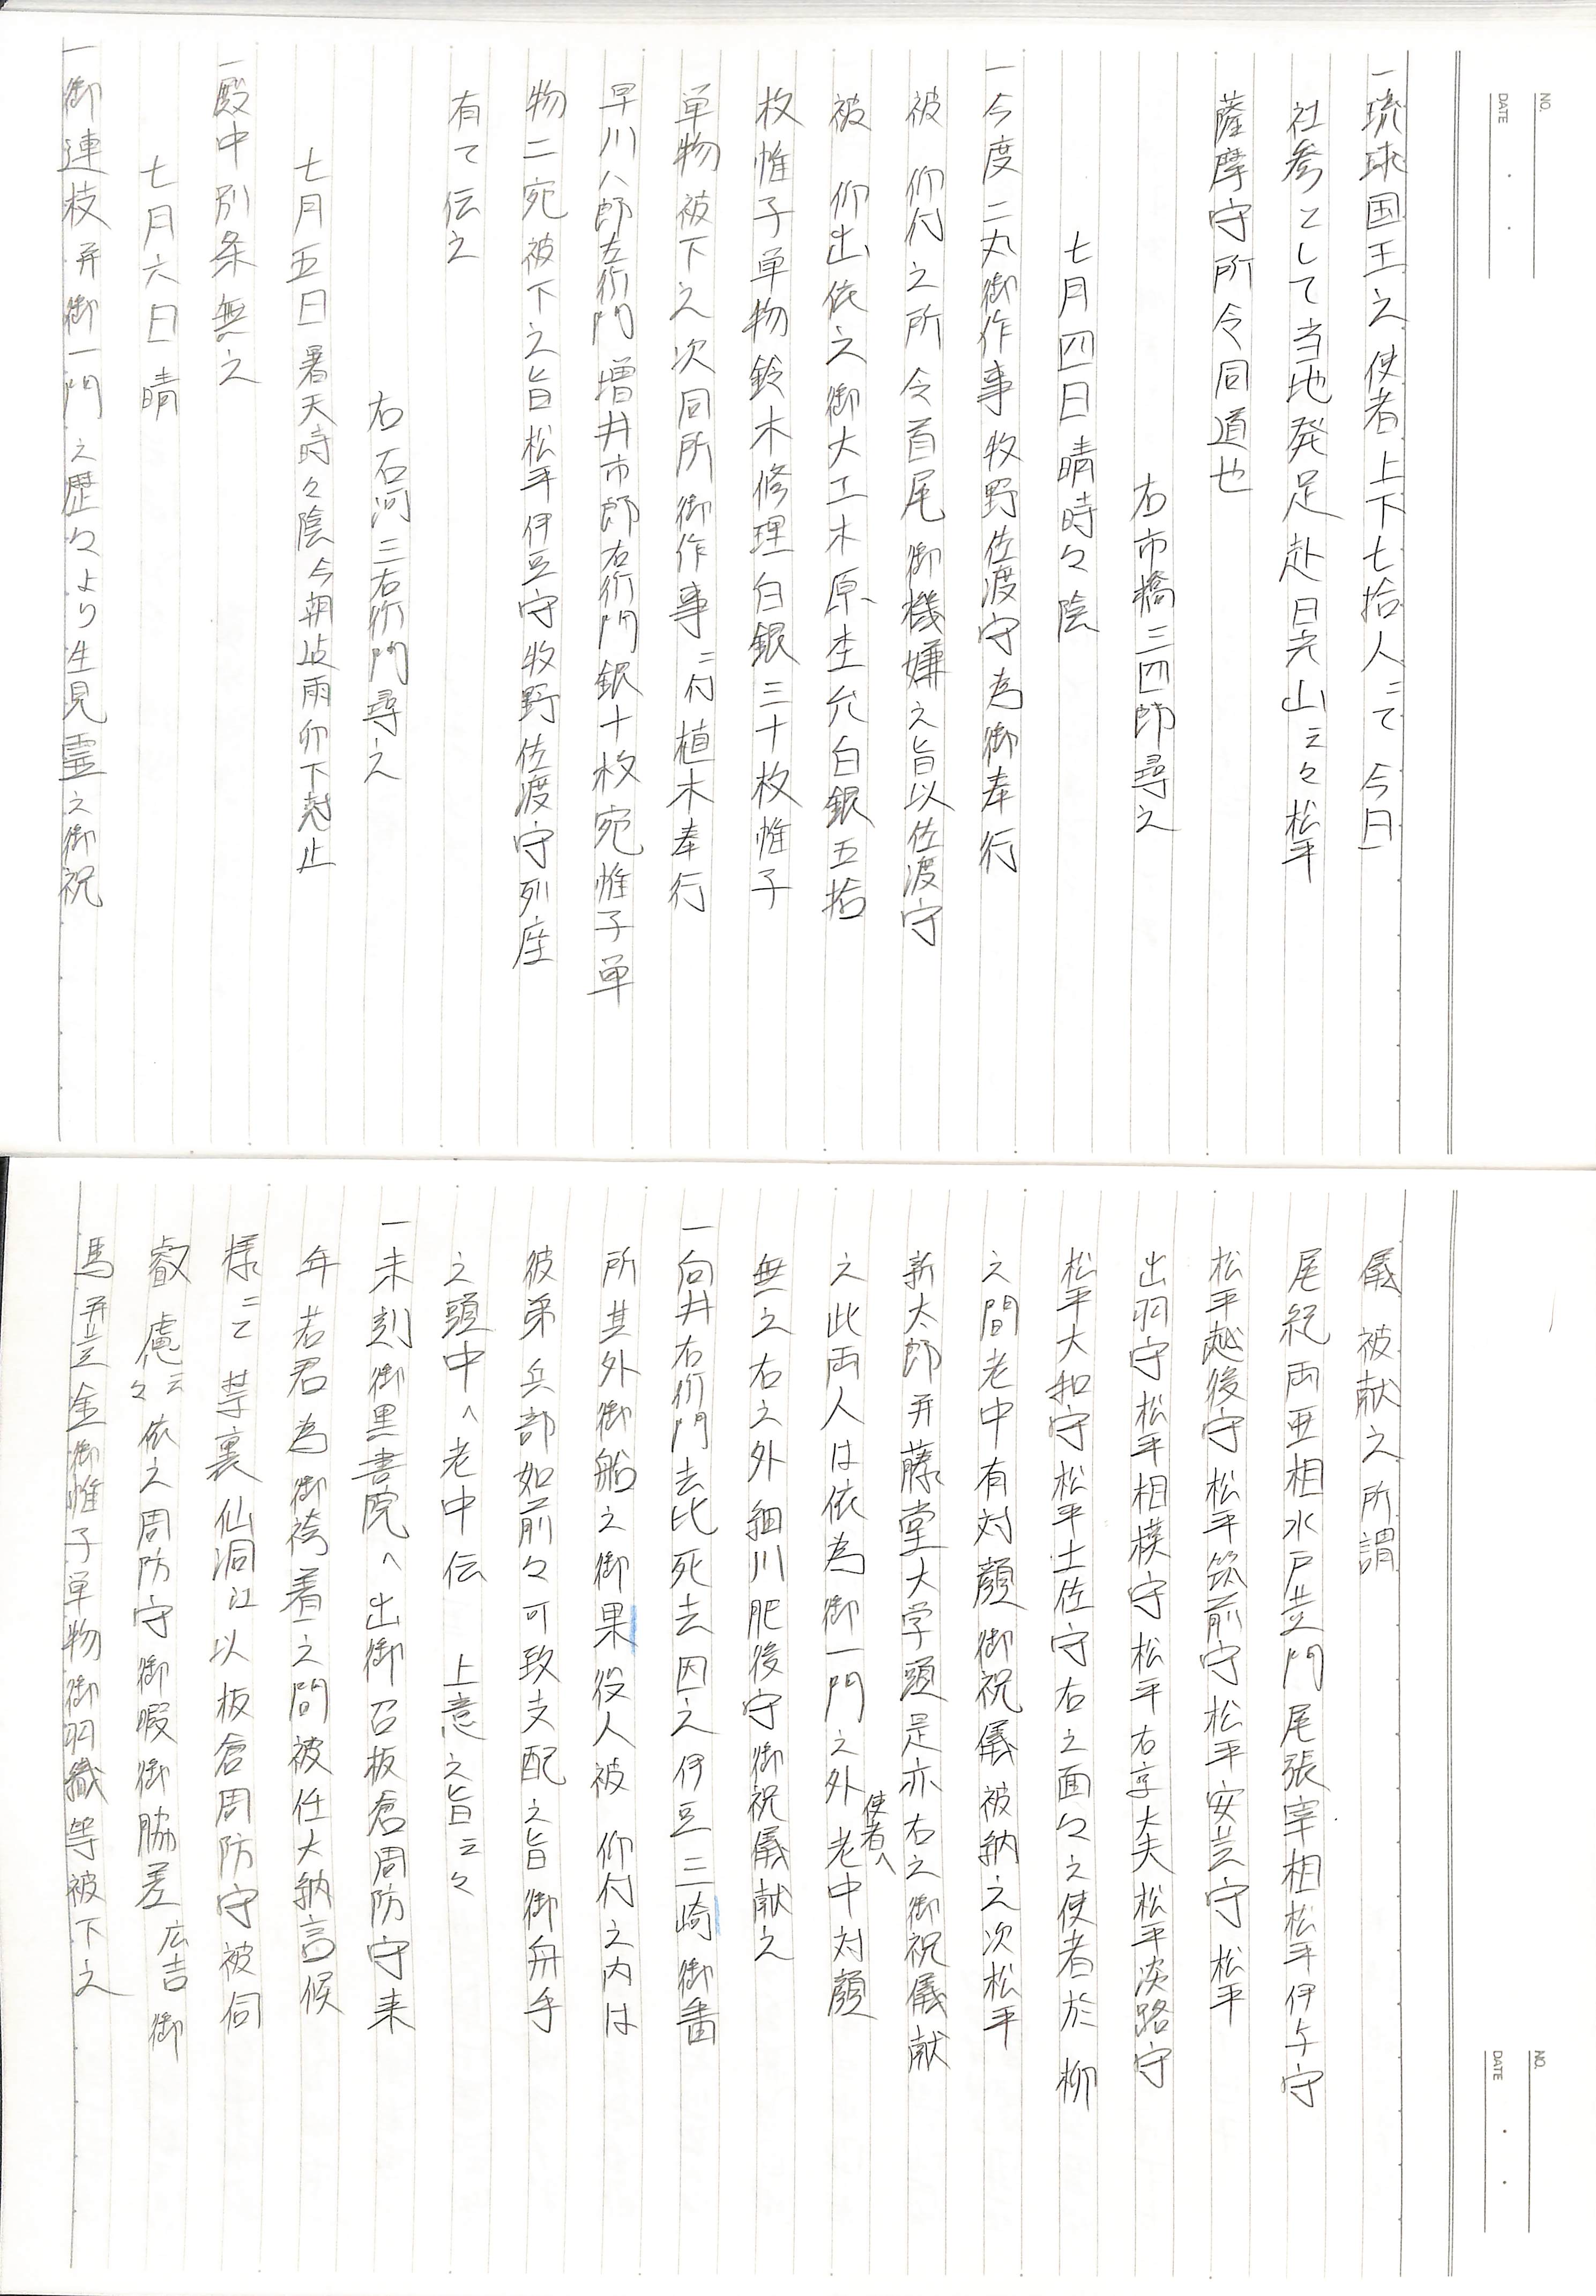 NO.
DATE
一琉球国王之使者上下七拾人ニて今日
社参として当地発足赴日光山云々松平
薩摩守所令同道也
右市橋三四郎尋之
七月四日晴時々陰
一今度二丸御作事牧野佐渡守為御奉行
被 仰付之所令首尾御機嫌之旨以佐渡守
被 仰出依之御大工木原杢允白銀五拾
枚帷子単物鈴木修理白銀三十枚帷子
単物被下之次同所御作事ニ付植木奉行
早川八郎左衛門増井市郎右衛門銀十枚宛帷子単
物二宛被下之旨松平伊豆守牧野佐渡守列座
有て伝之
右石河三右衛門尋之
七月五日暑天時々陰今朝は雨卯下刻止
一殿中別条無之
七月六日晴
一御連枝并御一門之歴々より生見霊之御祝
NO.
DATE
儀被献之所謂
尾紀両亜相水戸黄門尾張宰相松平伊与守
松平越後守松平筑前守松平安芸守松平
出羽守松平相模守松平右京大夫松平淡路守
松平大和守松平土佐守右之面々之使者於 柳
之間老中有対顔御祝儀被納之次松平
新太郎并藤堂大学頭是亦右之御祝儀献
之此両人は依為御一門之外使者へ老中対顔
無之右之外細川肥後守御祝儀献之
一向井右衛門去比死去因之伊豆三崎御番
所其外御船之御果役人被 仰付之内は
彼弟兵部如前々可致支配之旨御舟手
之頭中へ老中伝 上意之旨云々
一未刻御黒書院へ出御召板倉周防守来
年若君為御袴着之間被任大納言候
様ニて禁裏仙洞江以板倉周防守被伺
叡慮云々依之周防守御暇御脇差広吉御
馬并黄金御帷子単物御羽織等被下之